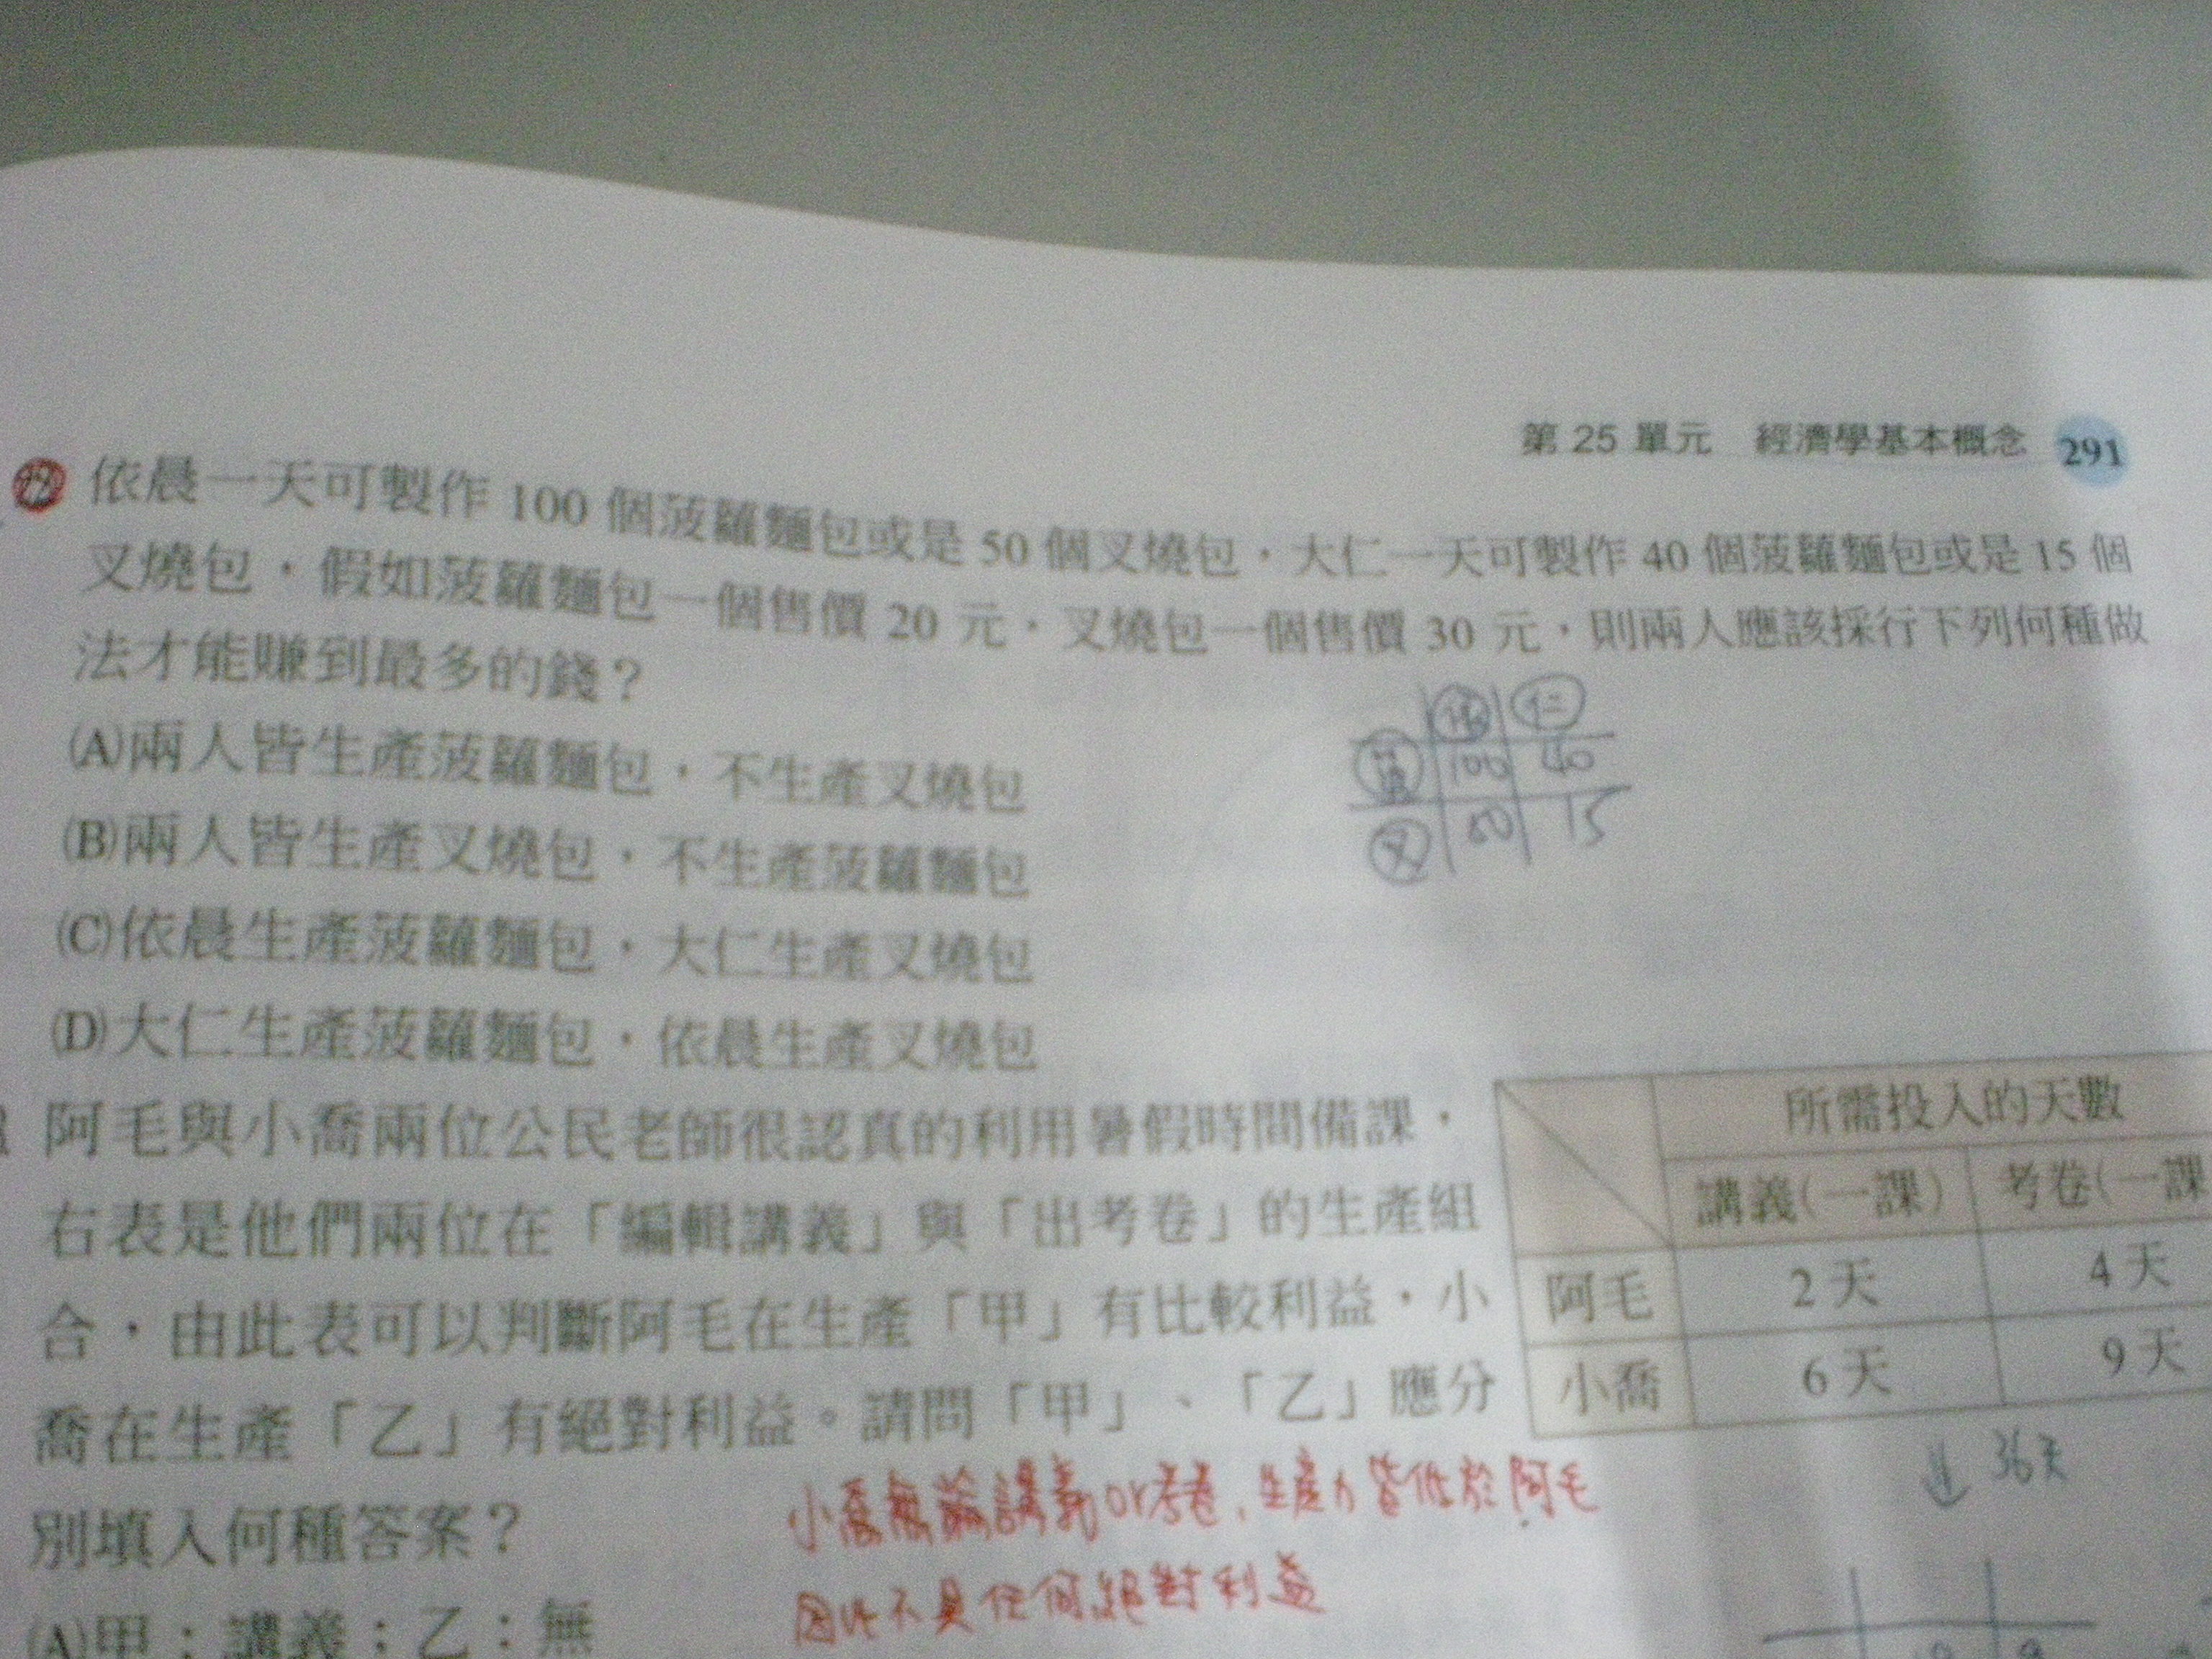 第 25 單元　經濟學基本概念　291
依晨一天可製作 100 個菠蘿麵包或是 50 個叉燒包，大仁一天可製作 40 個菠蘿麵包或是 15 個
叉燒包，假如菠蘿麵包一個售價 20 元，叉燒包一個售價 30 元，則兩人應該採行下列何種做
法才能賺到最多的錢？
(A)兩人皆生產菠蘿麵包，不生產叉燒包
(B)兩人皆生產叉燒包，不生產菠蘿麵包
(C)依晨生產菠蘿麵包，大仁生產叉燒包
(D)大仁生產菠蘿麵包，依晨生產叉燒包
依 仁
菠 100 40
叉 50 15
阿毛與小喬兩位公民老師很認真的利用暑假時間備課，
右表是他們兩位在「編輯講義」與「出考卷」的生產組
合，由此表可以判斷阿毛在生產「甲」有比較利益，小
喬在生產「乙」有絕對利益。請問「甲」、「乙」應分
別填入何種答案？
(A)甲：講義；乙：無
所需投入的天數
講義(一課) 考卷(一課
阿毛 2 天 4 天
小喬 6 天 9 天
36天
小喬無論講義or考卷，生產力皆低於阿毛
因此不具任何絕對利益